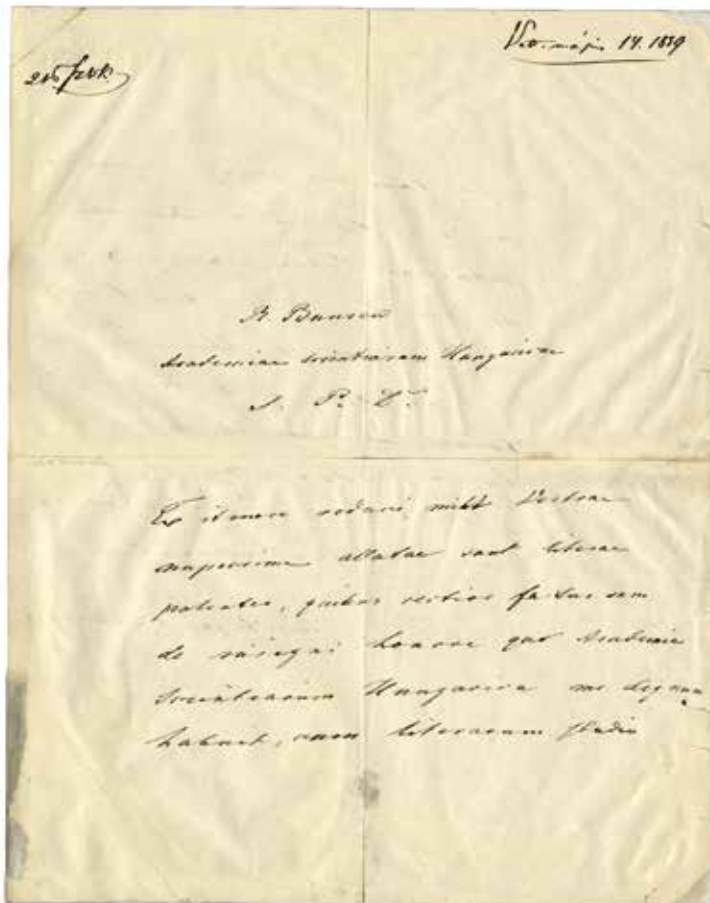 Vet. május 14. 1859
R. Bunsen
Academiae scientiarum Hungaricae
S. P. D.
Ex itinere reduci mihi Vestrae
nuperrime allatae sunt literae
patentes, quibus certior factus sum
de insigni honore quo Academia
Scientiarum Hungarica me dignum
habuit, cum literarum studia